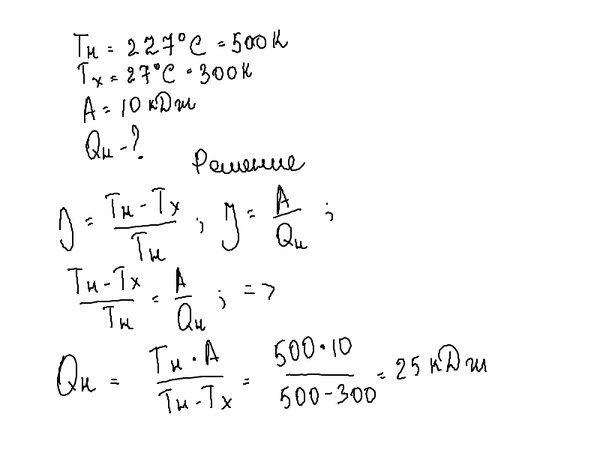 Tн = 227°C = 500К
Tх = 27°C = 300К
A = 10 кДж
Qн - ?
Решение
η = (Tн - Tх)/Tн ; η = A/Qн ;
(Tн - Tх)/Tн = A/Qн ; =>
Qн = (Tн · A)/(Tн - Tх) = (500 · 10)/(500 - 300) = 25 кДж